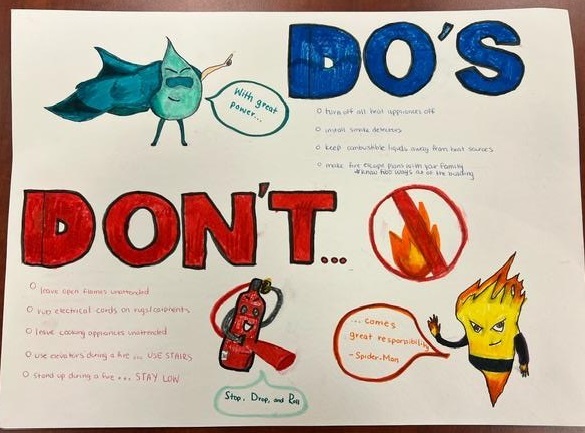 DO'S
With great
power...
turn off all heat appliances off
install smoke detectors
keep combustible liquids away from heat sources
make fire escape plans with your family
#know two ways out of the building
DON'T...
leave open flames unattended
run electrical cords on rugs/carpents
leave cooking appliances unattended
use elevators during a fire... USE STAIRS
stand up during a fire... STAY LOW
Stop, Drop, and Roll
...comes
great responsibility
-Spider.Man